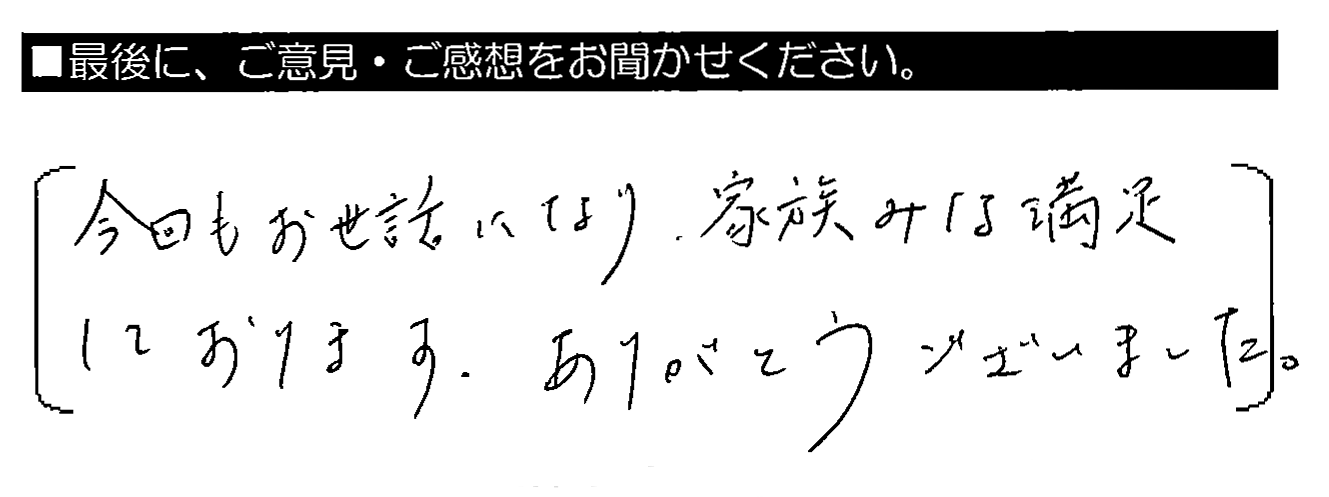 ■最後に、ご意見・ご感想をお聞かせください。
今回もお世話になり、家族みな満足
しております。ありがとうございました。